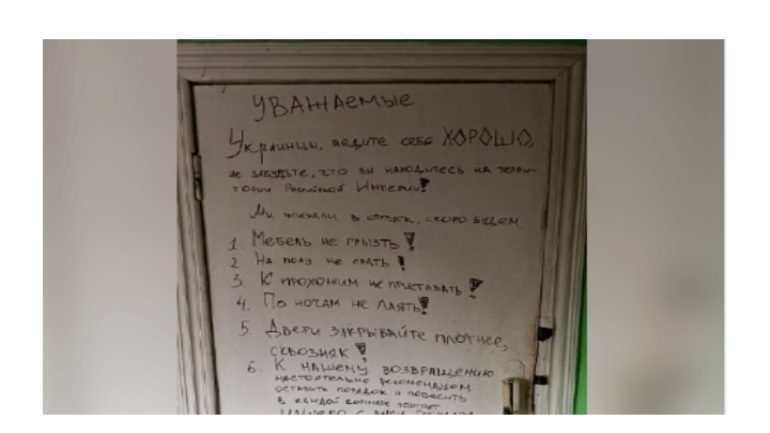 Уважаемые
Украинцы, ведите себя ХОРОШО,
не забудьте, что вы находитесь на терри-
тории Российской Империи!
Мы поехали в отпуск, скоро будем
1. Мебель не грызть!
2. На полу не срать!
3. К прохожим не приставать!
4. По ночам не лаять!
5. Двери закрывайте плотнее,
сквозняк!
6. К нашему возвращению
настоятельно рекомендуем
оставить порядок и повесить
в каждой комнате портрет
нашего с вами